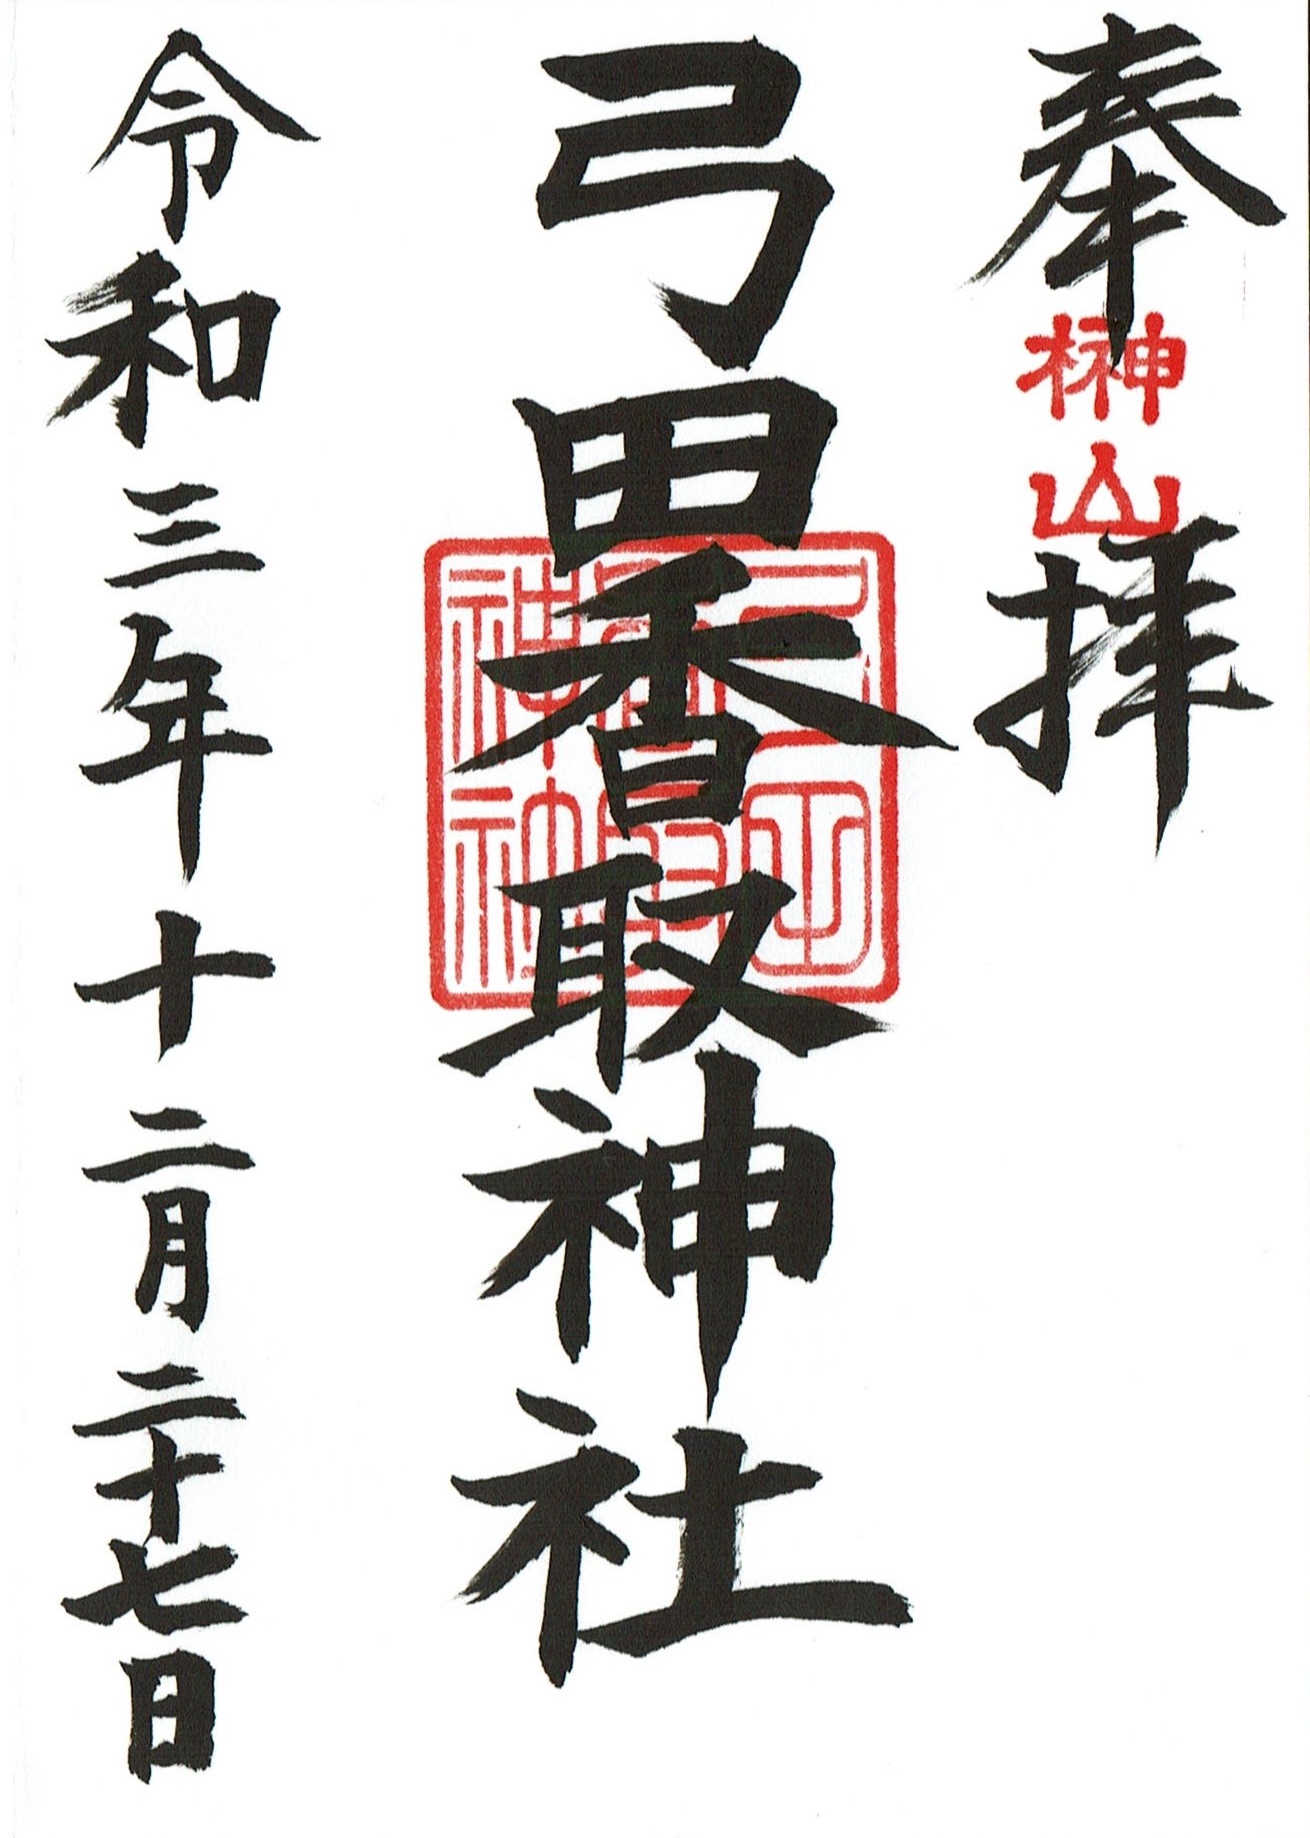 奉拝
榊山
弓田香取神社
令和三年十二月二十七日